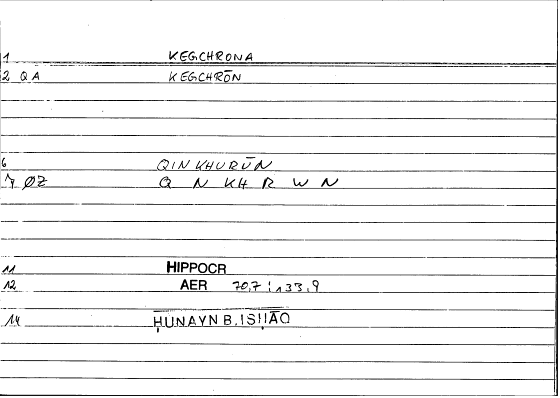 1 KEGCHRONA
2 QA KEGCHRŌN
6 QINKHURŪN
7 ØZ Q N KH R W N
11 HIPPOCR
12 AER 70,7 ; 133,9
14 ḤUNAYN B. ISḤĀQ